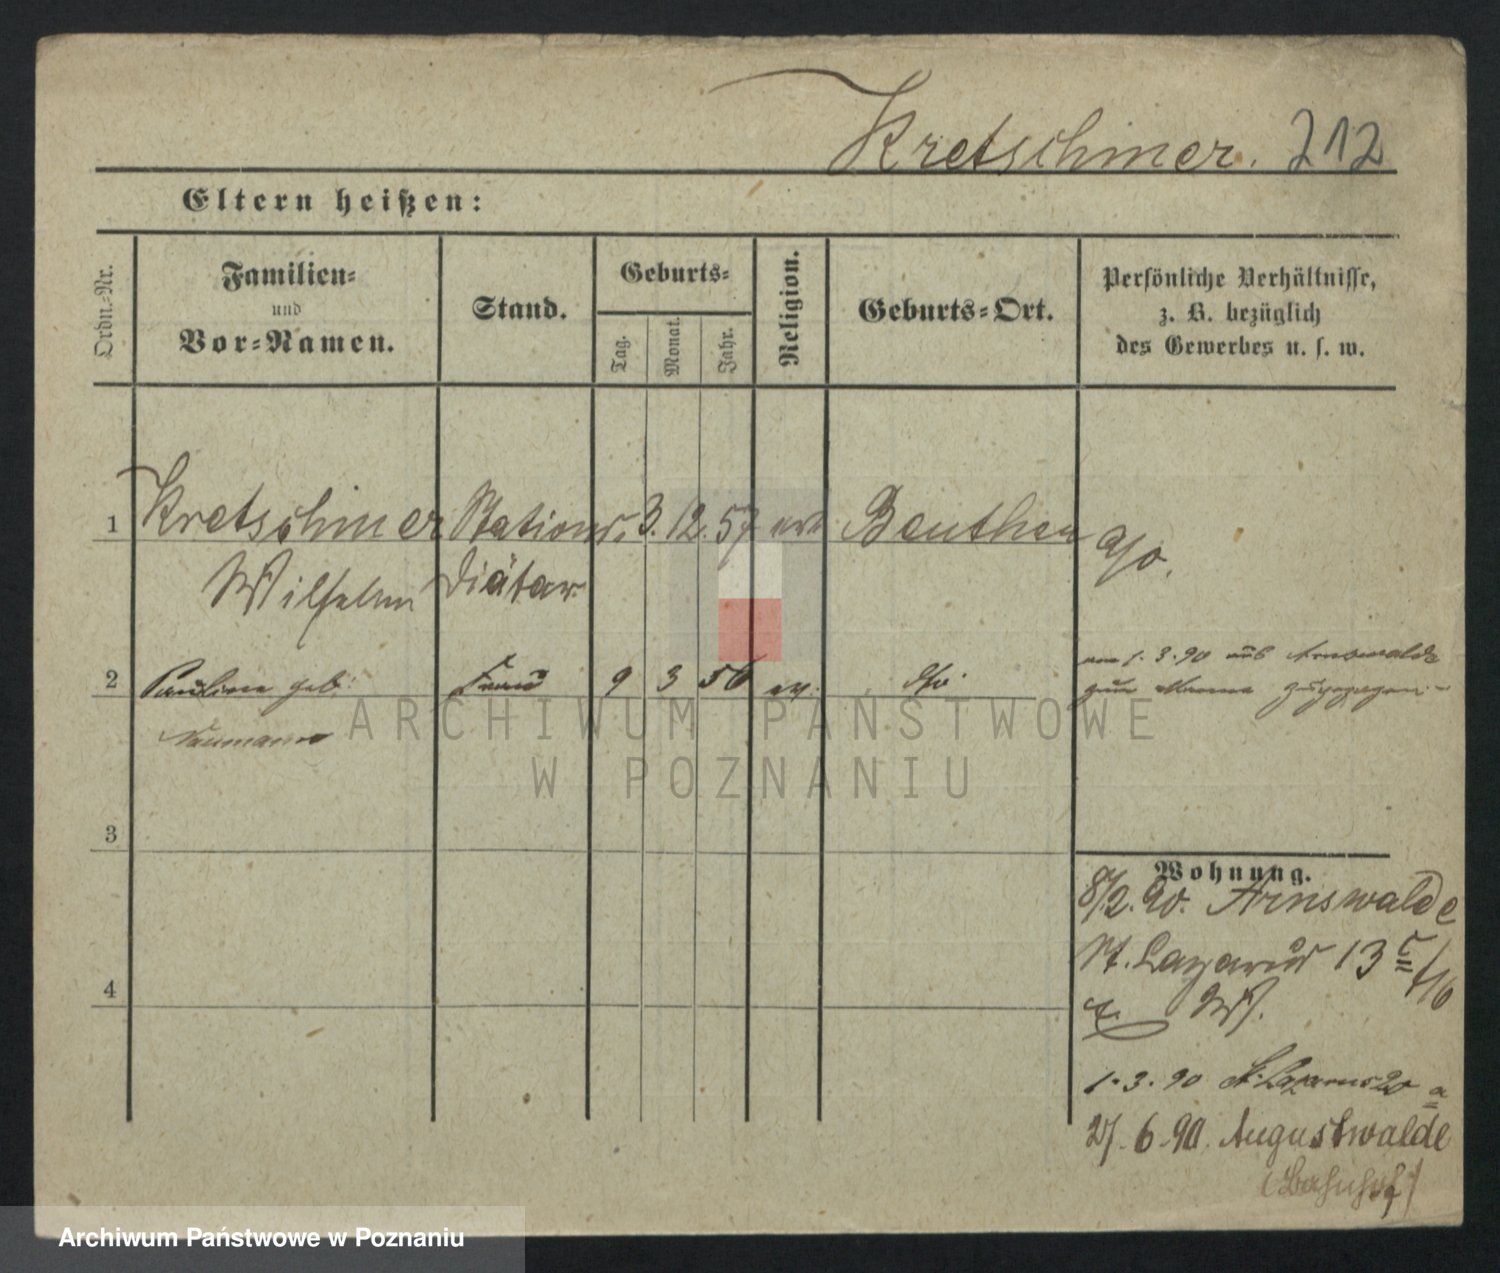 Kretschmer. 212
Eltern heißen:
Ordn.-Nr.
Familien-
und
Vor-Namen.
Stand.
Geburts-
Tag.
Monat.
Jahr.
Religion.
Geburts-Ort.
Persönliche Verhältnisse,
z. B. bezüglich
des Gewerbes u. s. w.
1 Kretschmer Stations. 3. 12. 57 Beuthen
Wilhelm Diätar a/o.
2 Pauline geb: Frau 9 3 56 ev. do.
Naumann
am 1. 3. 90 aus Arnswalde
zum Manne zugezogen.
3
4
Wohnung.
8/2. 90. Arnswalde
St. Lazarus 13
1. 3. 90 St. Lazarus 20 a
27. 6. 90. Augustwalde
(Bahnhof)
ARCHIWUM PAŃSTWOWE
W POZNANIU
Archiwum Państwowe w Poznaniu